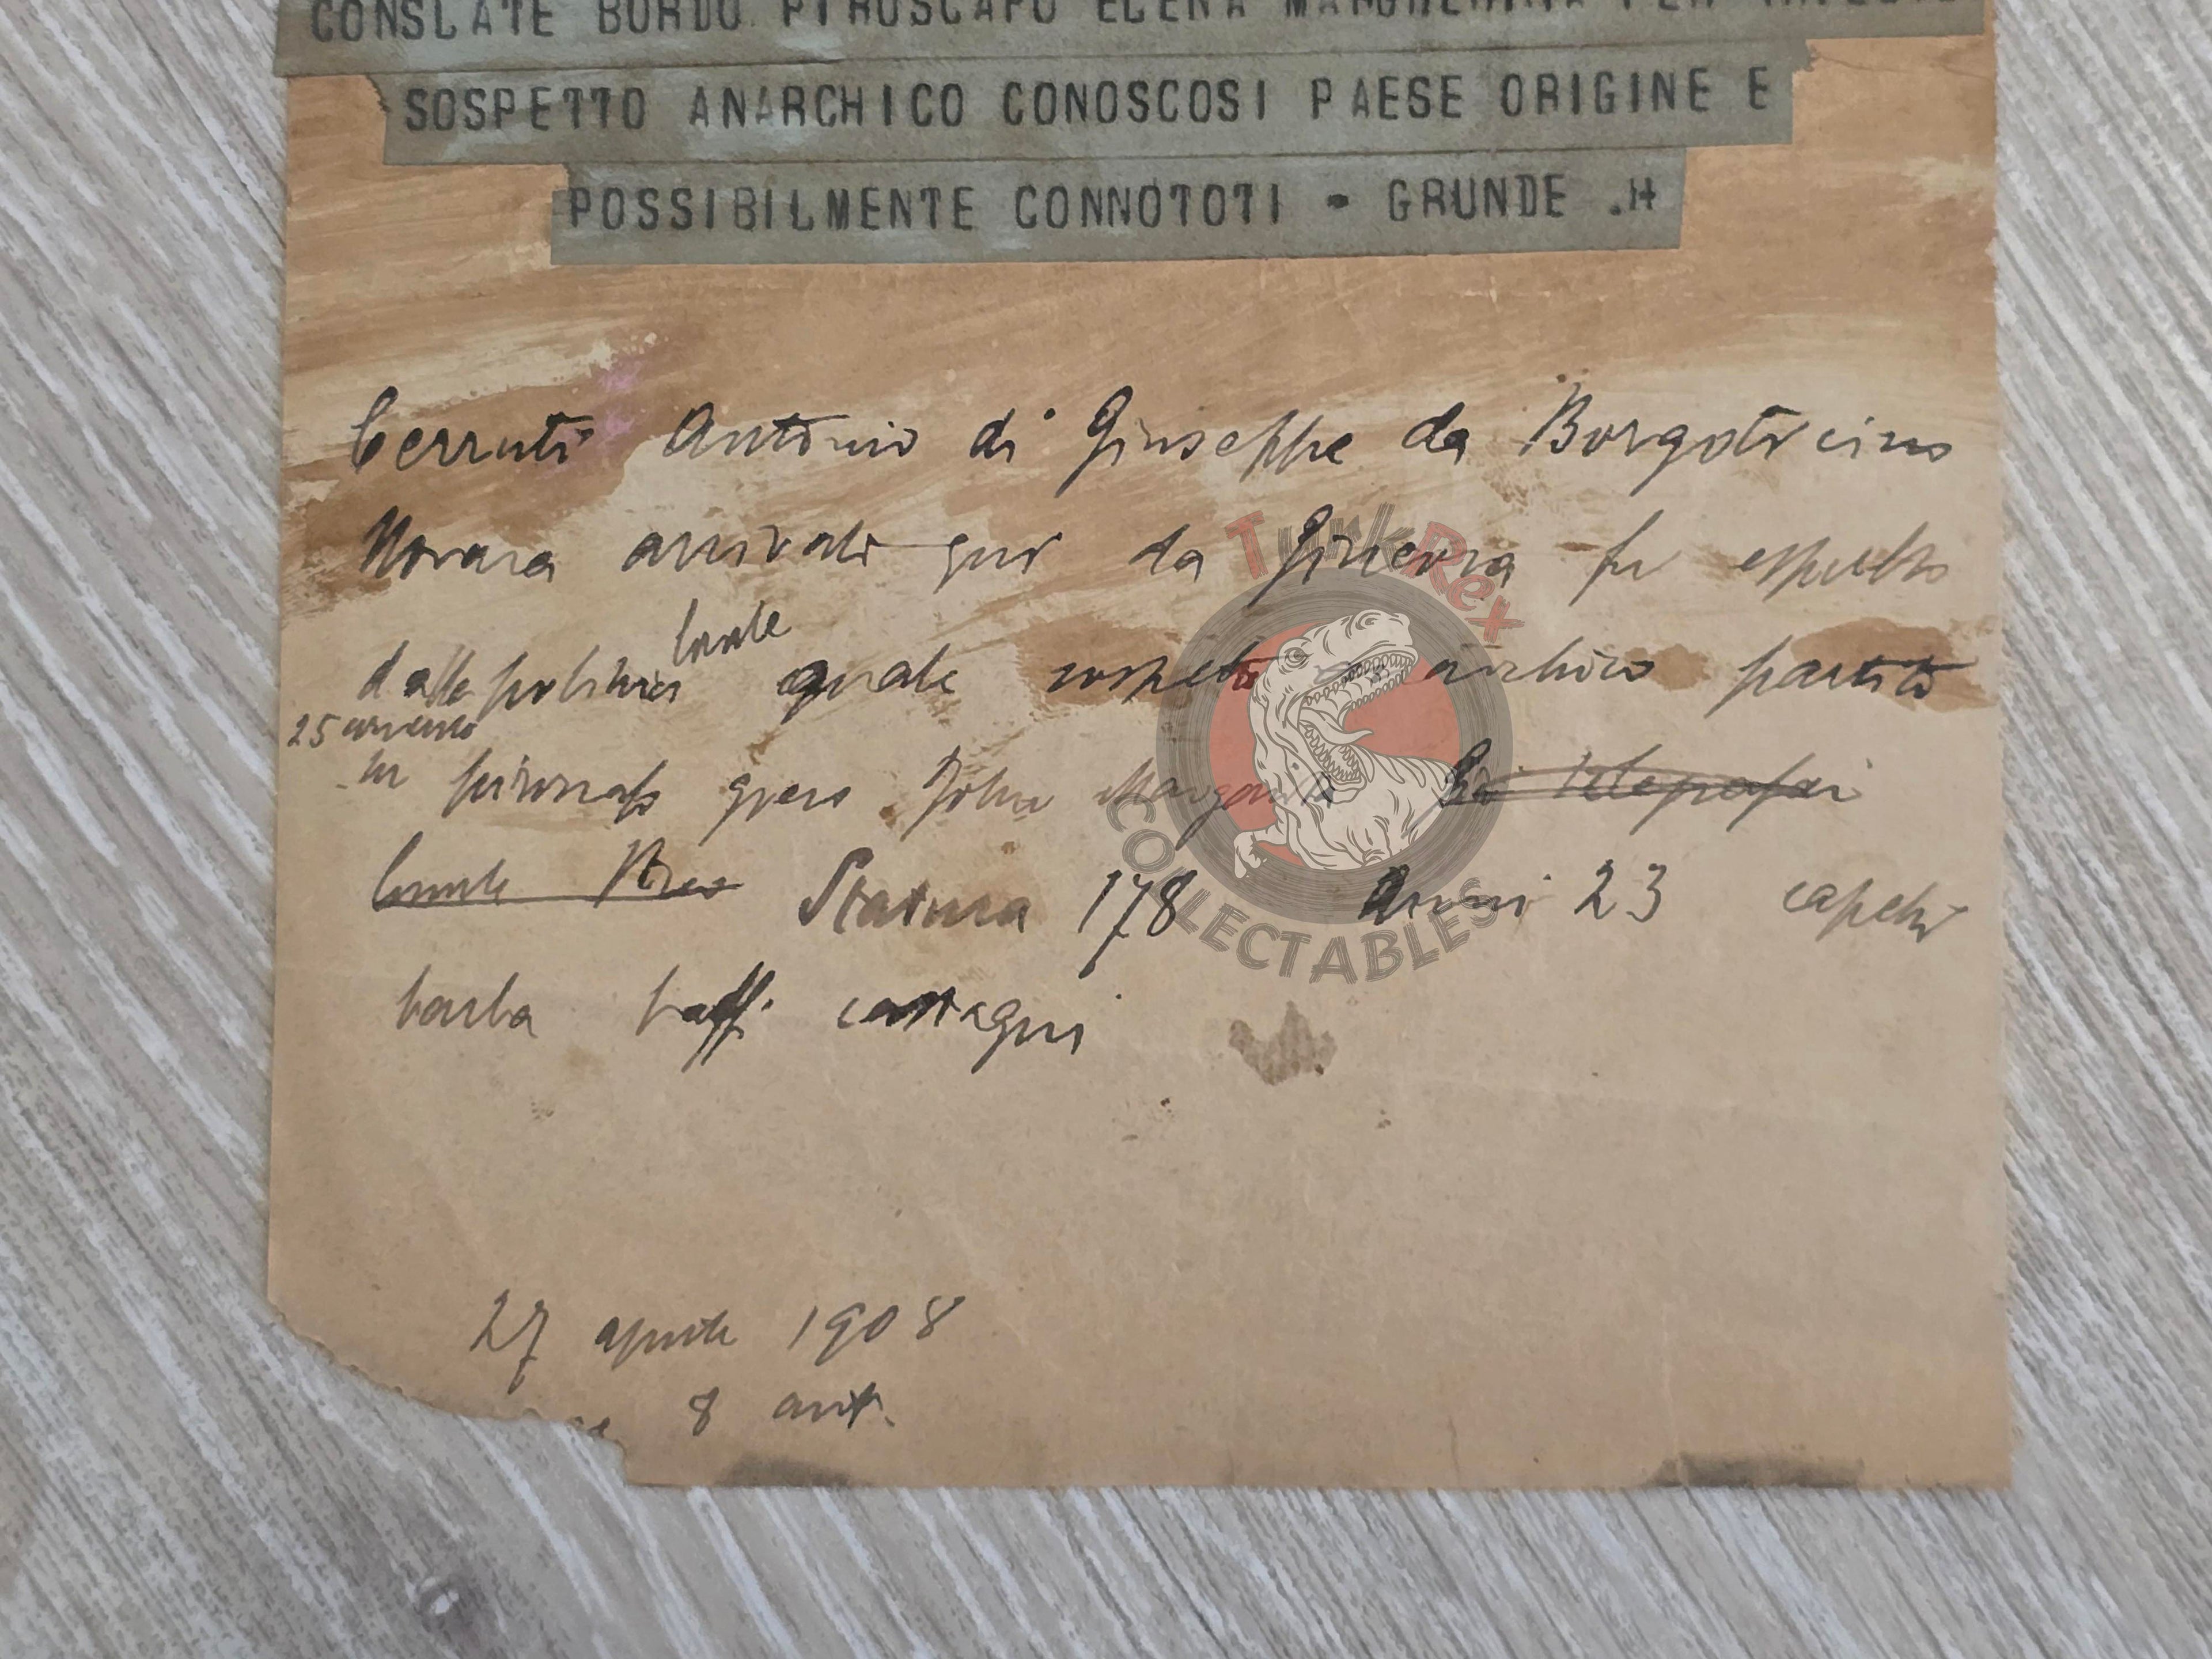 CONSLATE BORDO PIROSCAFO ELENA MARGHERITA PER
SOSPETTO ANARCHICO CONOSCOSI PAESE ORIGINE E
POSSIBILMENTE CONNOTOTI - GRUNDE .H
Cerruti Antonio di Giuseppe da Borgoticino
Novara arrivato qui da Ginevra fu espulso
dalla polizia locale quale sospetto anarchico partito
25 corrente
in piroscafo greco
Statura 178 Anni 23 capelli
barba baffi castagni
27 aprile 1908
8 ant.
TurkRex
COLLECTABLES